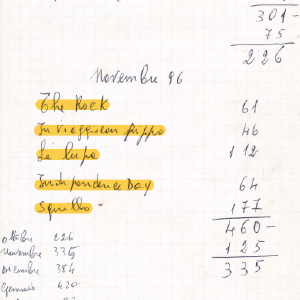 301-
75
226
Novembre 96
The Rock 61
In viaggio con pippo 46
Le lupo 112
Indipendence Day 64
Squillo - 177
460-
125
335
ottobre 226
Novembre 335
Dicembre 384
Gennaio 420